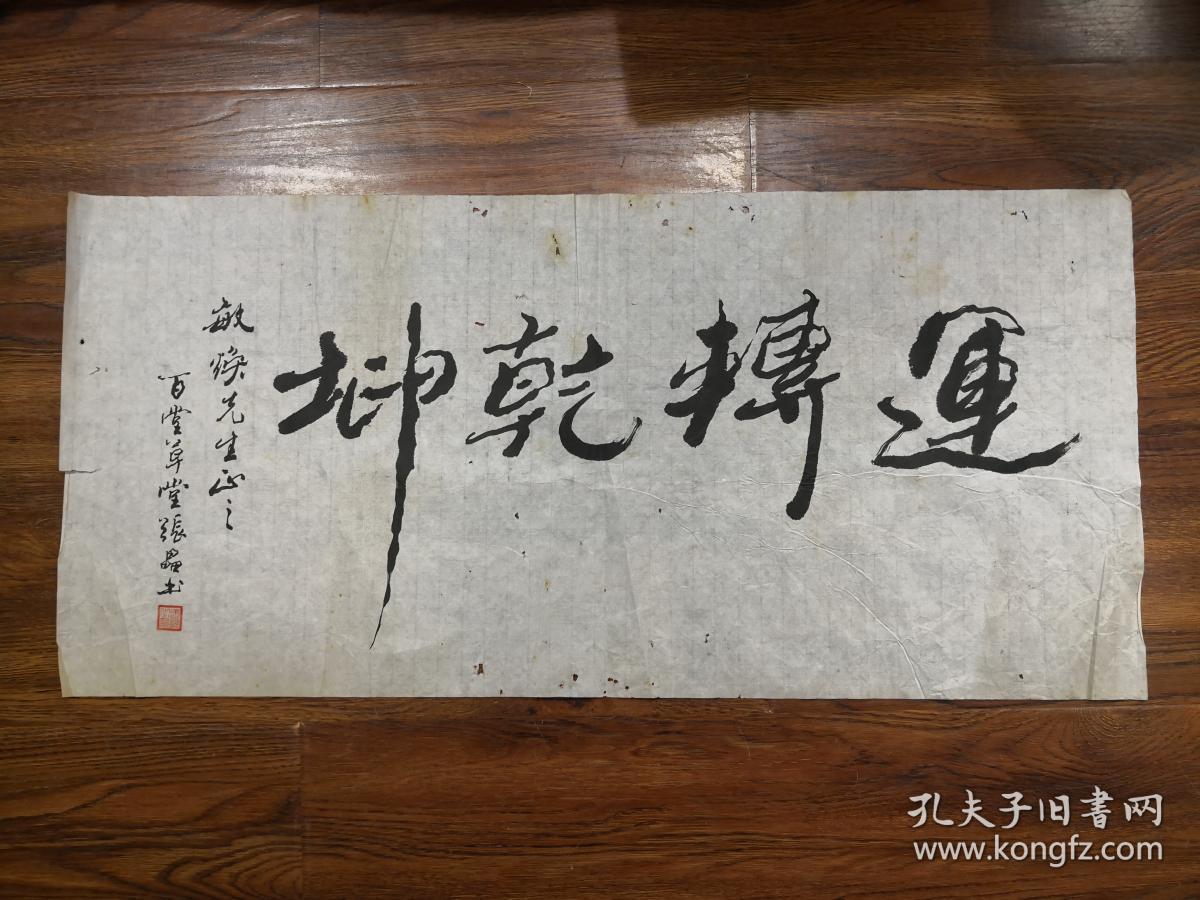 運轉乾坤
敏焕先生正之
百堂草堂張畾书
孔夫子旧書网
www.kongfz.com